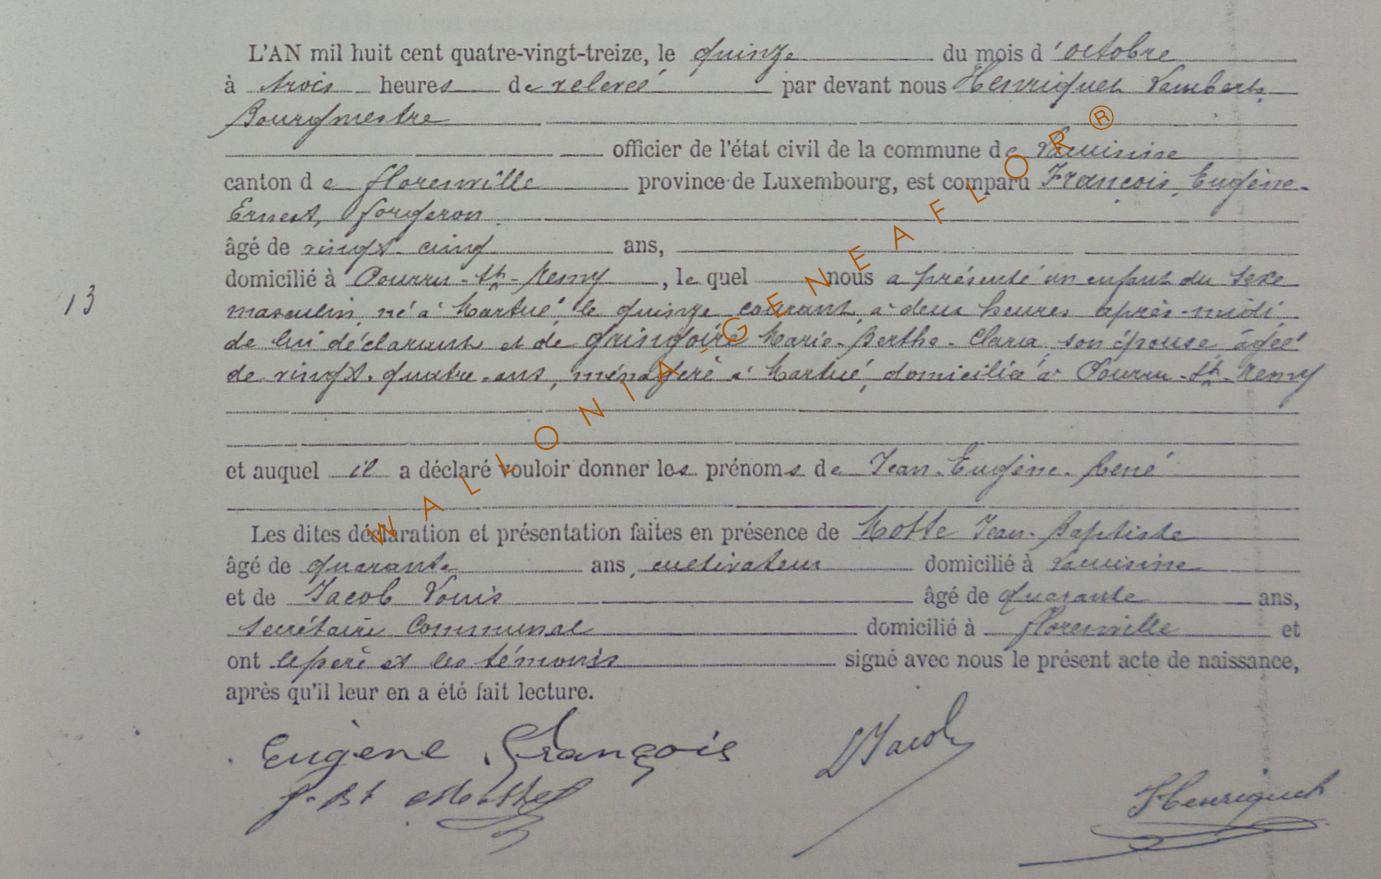 L'AN mil huit cent quatre-vingt-treize, le quinze du mois d'octobre
à trois heures de relevée par devant nous Henriquet Lambert,
Bourgmestre
officier de l'état civil de la commune de Lacuisine
canton de florenville province de Luxembourg, est comparu François, Eugène-
Ernest, forgeron
âgé de vingt-cinq ans,
domicilié à Pourru-St-Remy, le quel nous a présenté un enfant du sexe
13
masculin, né à Martué le quinze courant, à deux heures après-midi
de lui déclarant et de Gringoire Marie-Berthe-Clara, son épouse âgée
de vingt-quatre ans, ménagère à Martué, domiciliée à Pourru-St-Remy
et auquel il a déclaré vouloir donner les prénoms de Jean-Eugène-René
Les dites déclaration et présentation faites en présence de Motte Jean-Baptiste
âgé de quarante ans, cultivateur domicilié à Lacuisine
et de Jacob Louis âgé de quarante ans,
secrétaire communal domicilié à florenville et
ont le père et les témoins signé avec nous le présent acte de naissance,
après qu'il leur en a été fait lecture.
Eugène François
L Jacob
J-Bt Motte
Henriquet
WALLONIA-GENEAFLOR®